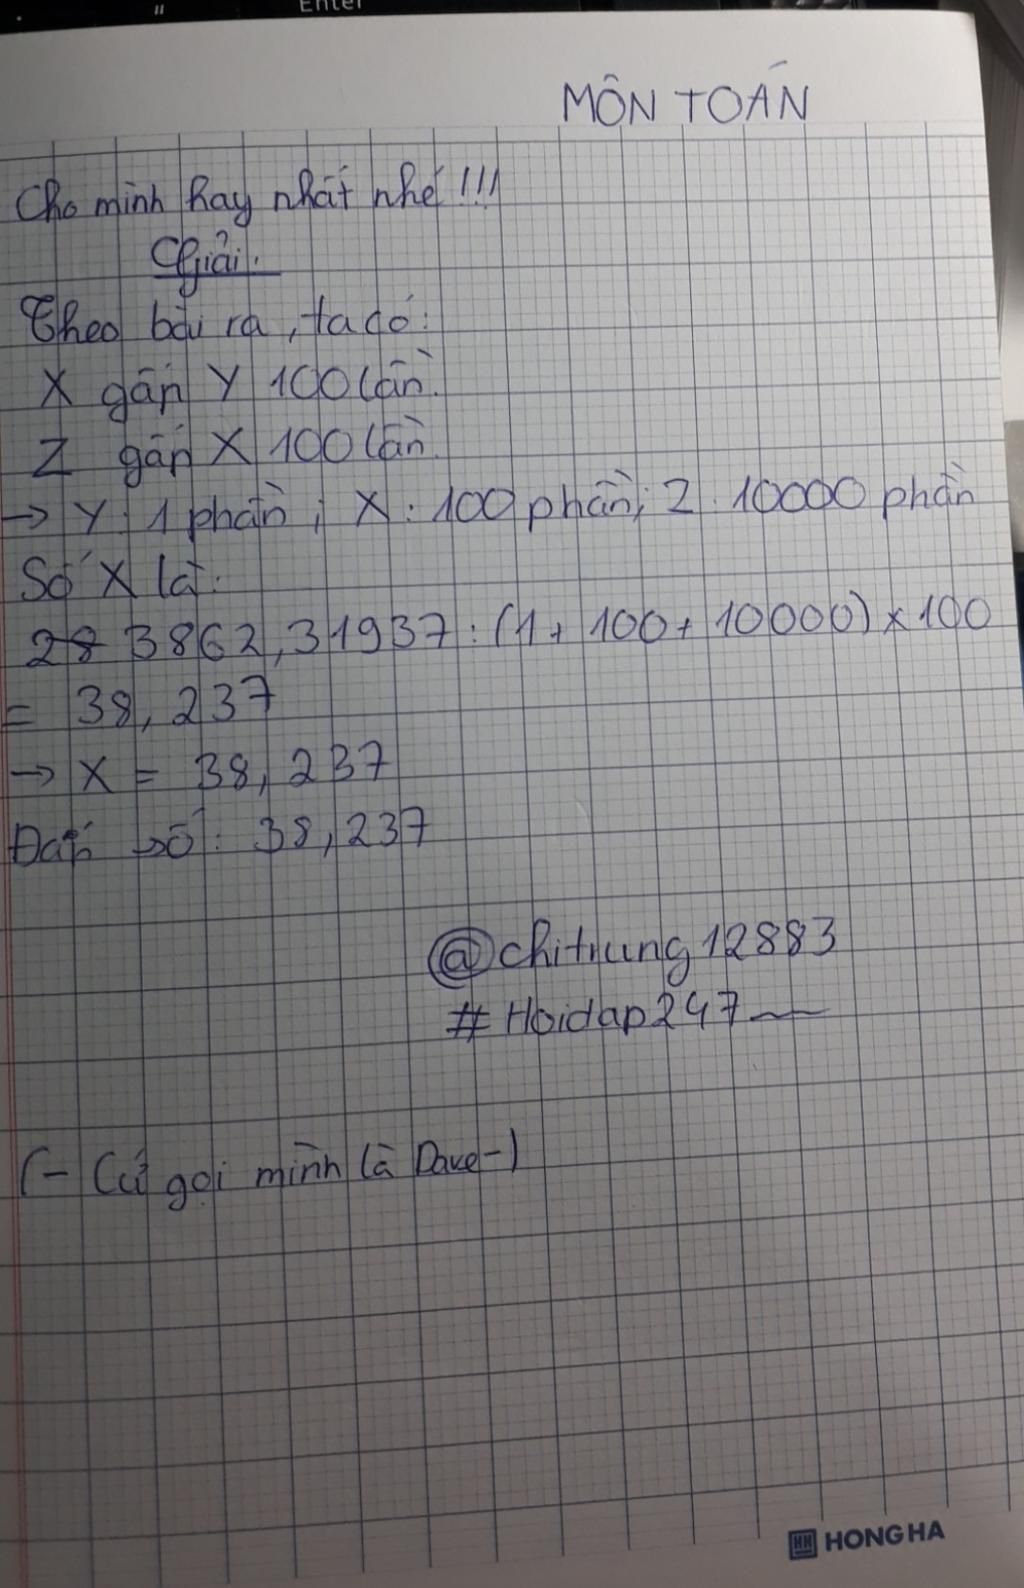 Enter
MÔN TOÁN
Cho mình hay nhất nhé !!!
Giải.
Theo bài ra, ta có:
X gấp Y 100 lần.
Z gấp X 100 lần.
→ Y: 1 phần; X: 100 phần; Z: 10000 phần
Số X là:
28 3862,31937 : (1 + 100 + 10000) x 100
= 38,237
→ X = 38,237
Đáp số: 38,237
@chitrung12883
#Hoidap247
(- Cứ gọi mình là Dave -)
HONG HA